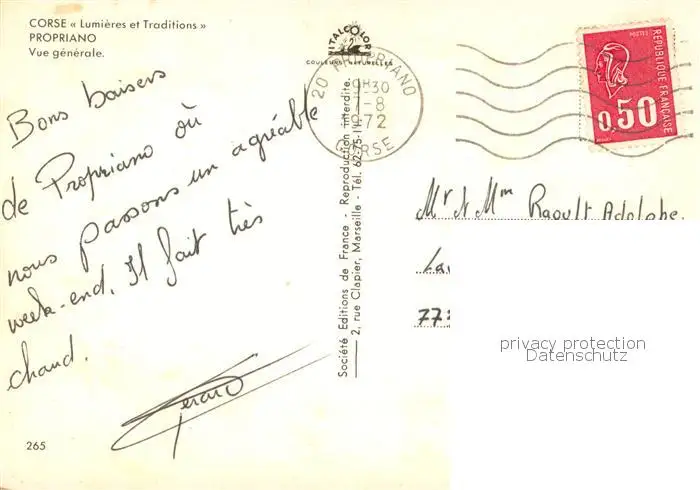 CORSE « Lumières et Traditions »
PROPRIANO
Vue générale.
Bons baisers
de Propriano où
nous passons un agréable
week-end. Il fait très
chaud.
Gérard
265
COULEURS NATURELLES
Société Editions de France - Reproduction interdite.
2, rue Clapier, Marseille - Tél. 62-75-11
20 PROPRIANO
9H30
7-8
1972
CORSE
POSTES
REPUBLIQUE FRANÇAISE
0,50
Mr & Mme Raoult Adolphe.
77
privacy protection
Datenschutz